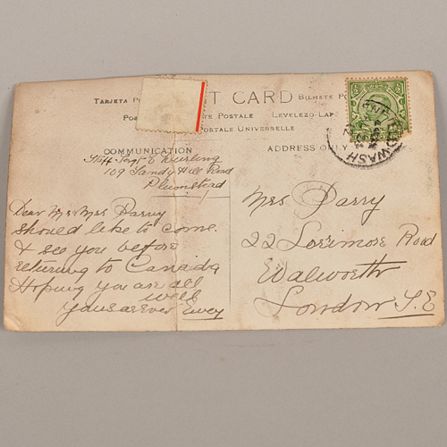 TARJETA PO ST CARD BILHETE PO
POS TE POSTALE LEVELEZO-LAP
POSTALE UNIVERSELLE
COMMUNICATION ADDRESS ONLY
Staff Sergt
109 Sandy Hill Road
Plumstead
Dear Mr & Mrs Parry
should like to come
& see you before
returning to Canada
Hoping you are all
well
yours as ever
Mrs Parry
22 Lorrimore Road
Walworth
London S.E